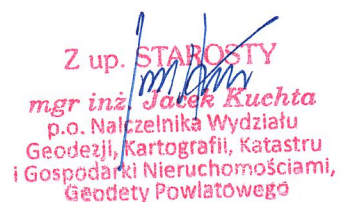 Z up. STAROSTY
mgr inż. Jacek Kuchta
p.o. Naczelnika Wydziału
Geodezji, Kartografii, Katastru
i Gospodarki Nieruchomościami,
Geodety Powiatowego